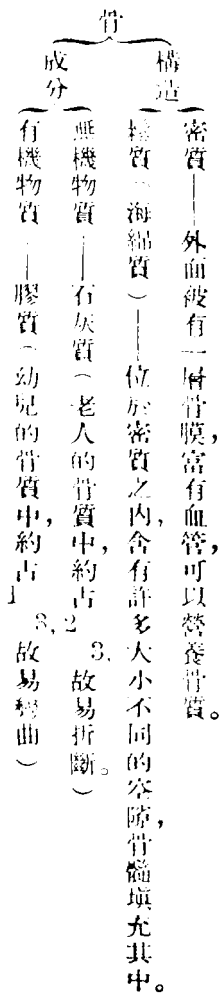 骨
構造
密質——外面被有一層骨膜，富有血管，可以營養骨質。
鬆質（海綿質）——位於密質之內，含有許多大小不同的空隙，骨髓填充其中。
成分
無機物質——石灰質（老人的骨質中，約占2 3，故易折斷。）
有機物質——膠質（幼兒的骨質中，約占1 3，故易彎曲）